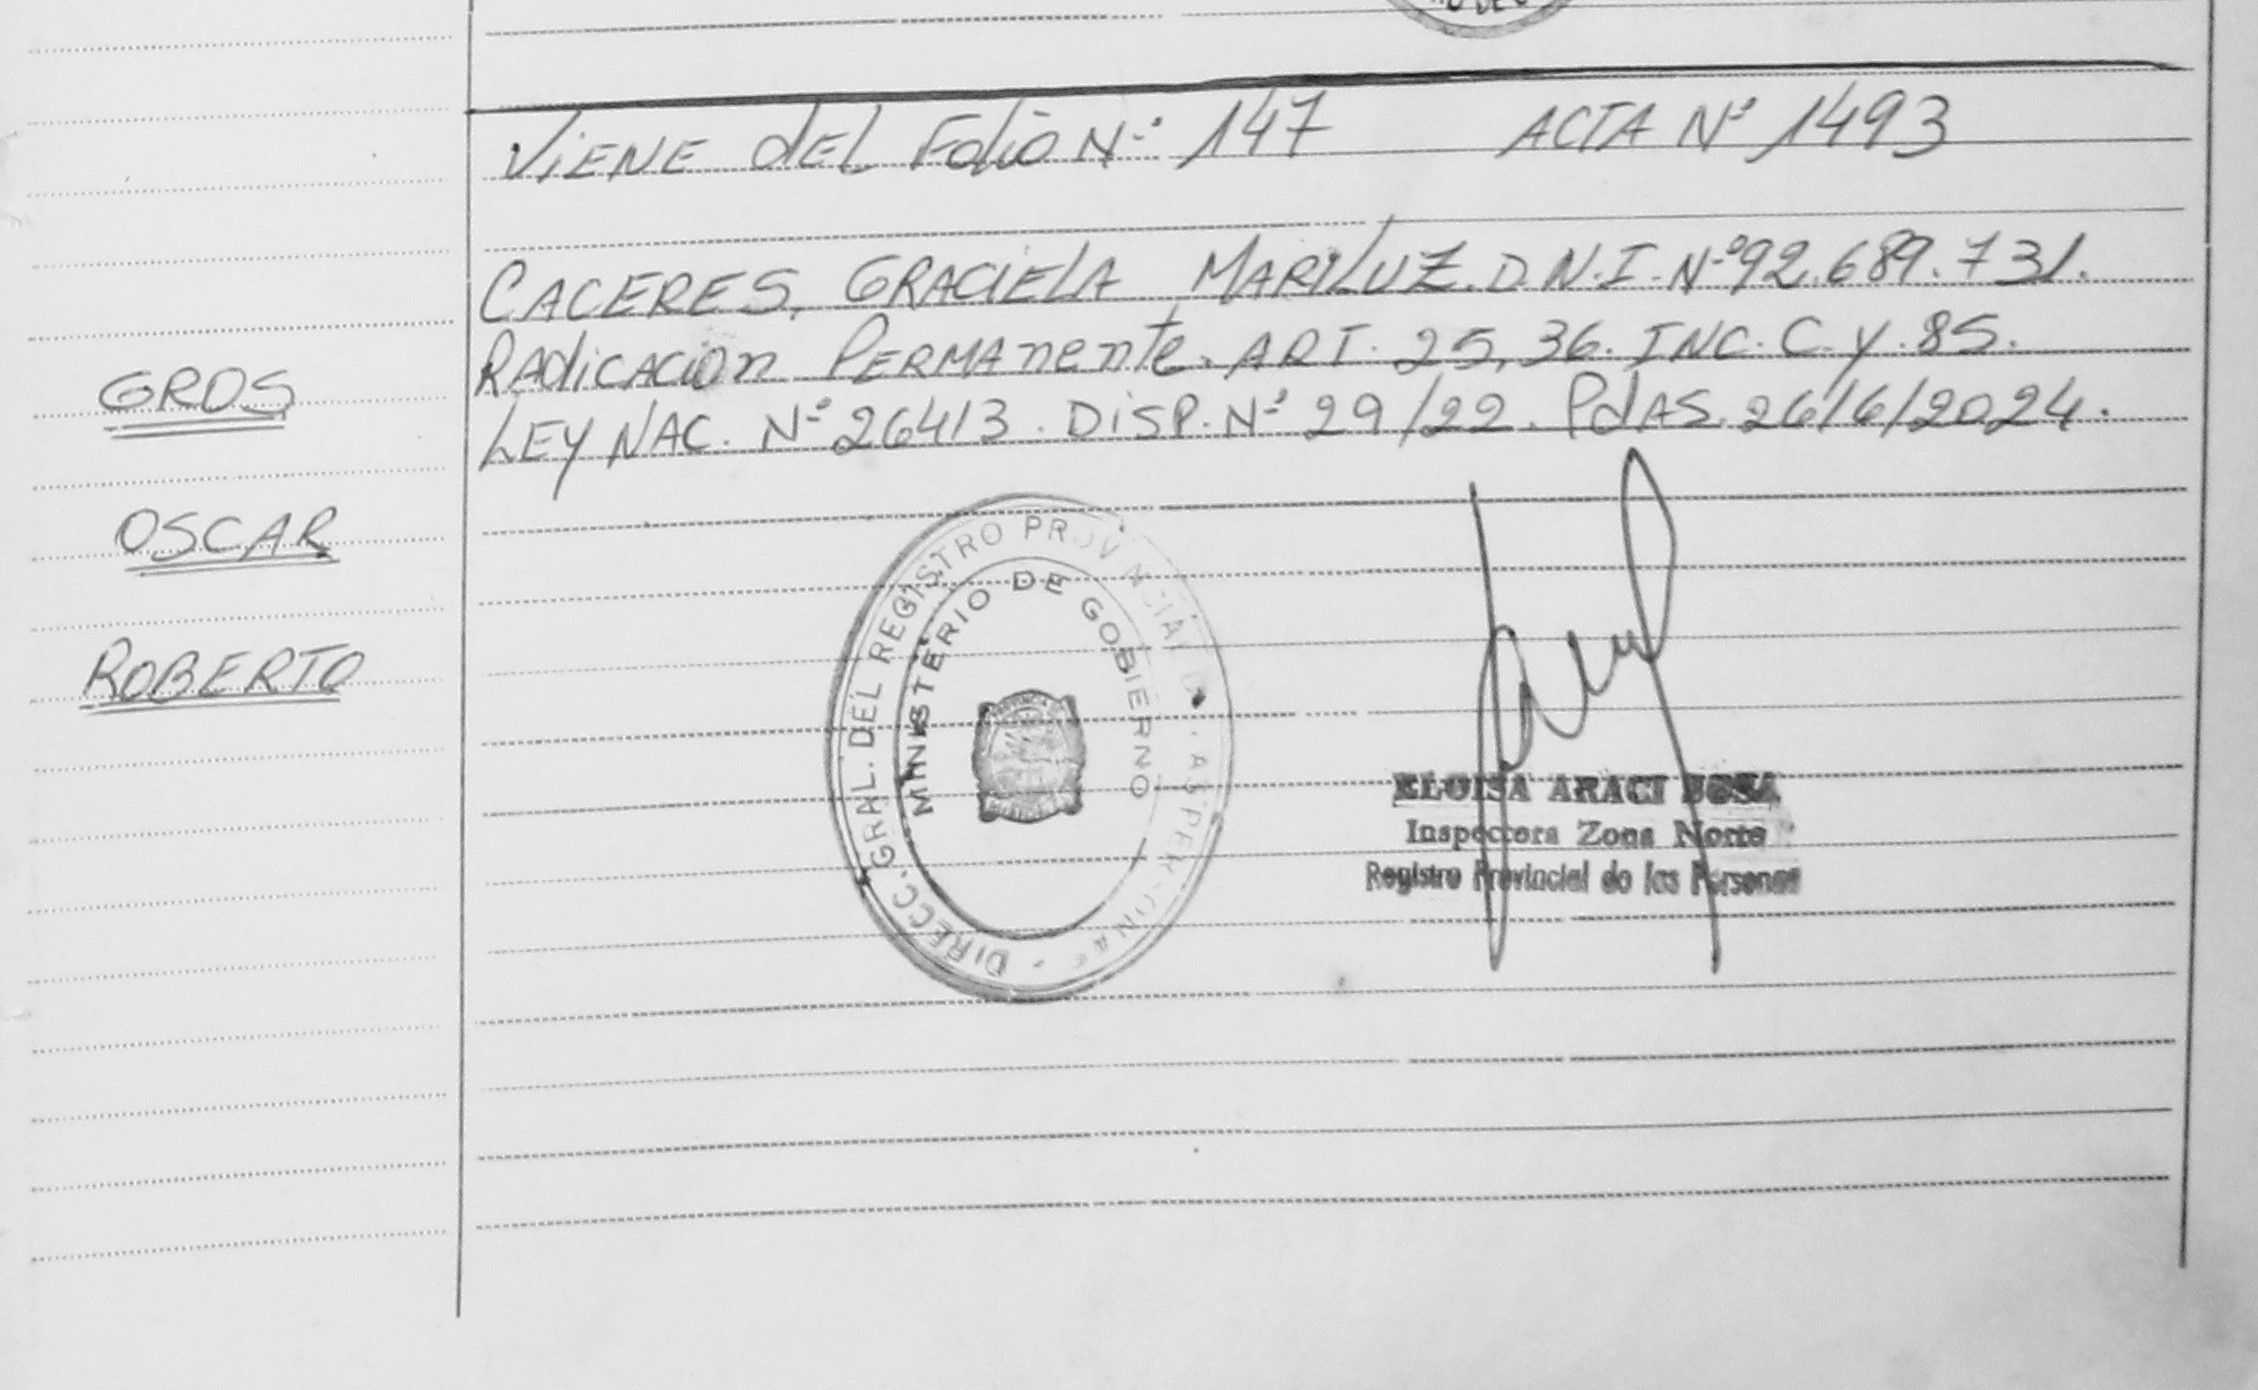 VIENE dEL Folio Nº 147 ACTA Nº 1493
CACERES, GRACIELA MARILUZ. D.N.I. Nº 92.689.731.
RAdiCACiOn PERMAnente. ART. 25, 36. INC. C. y. 85.
LEY NAC. Nº 26413. DISP. Nº 29/22. PdAS. 26/6/2024.
GROS
OSCAR
ROBERTO
DIRECC. GRAL. DEL REGISTRO PROVINCIAL DE LAS PERSONAS
MINISTERIO DE GOBIERNO
ELOISA ARACI SOSA
Inspectora Zona Norte
Registro Provincial de las Personas